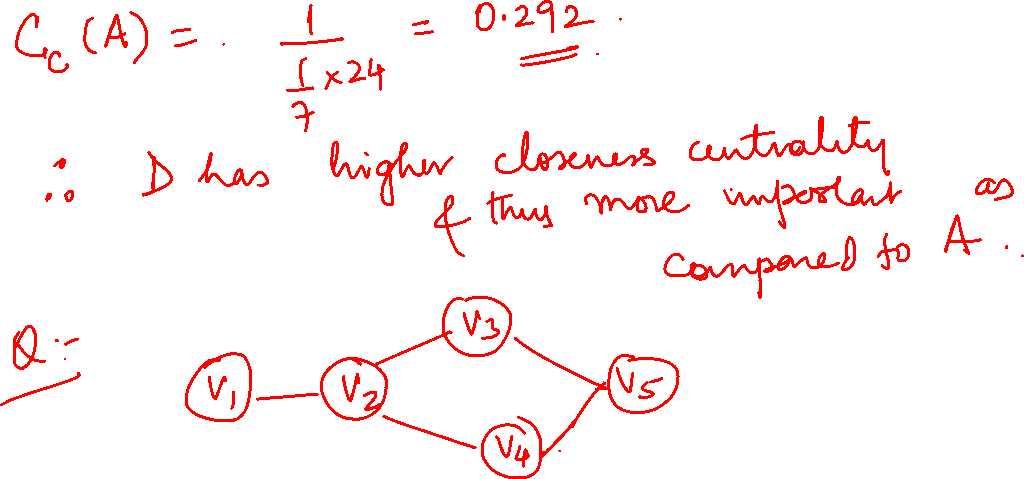 C_c (A) = . 1 / (1/7 x 24) = 0.292 .
∴ D has higher closeness centrality
& thus more important as
compared to A .
Q :-
V3
V1 V2 V5
V4